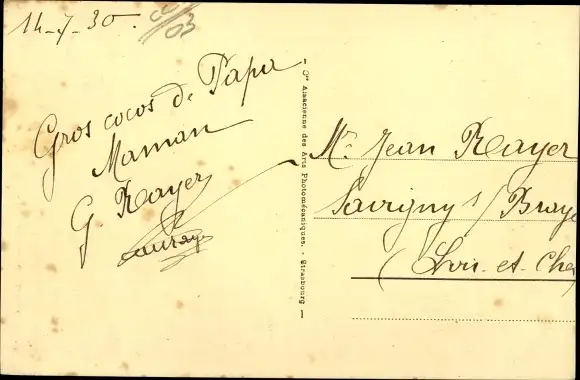 14-7-30.
03
Gros cocos de Papa
Maman
G Rayer
Cie Alsacienne des Arts Photomécaniques. - Strasbourg
Mr Jean Rayer
Savigny s/ Braye
(Loir-et-Che